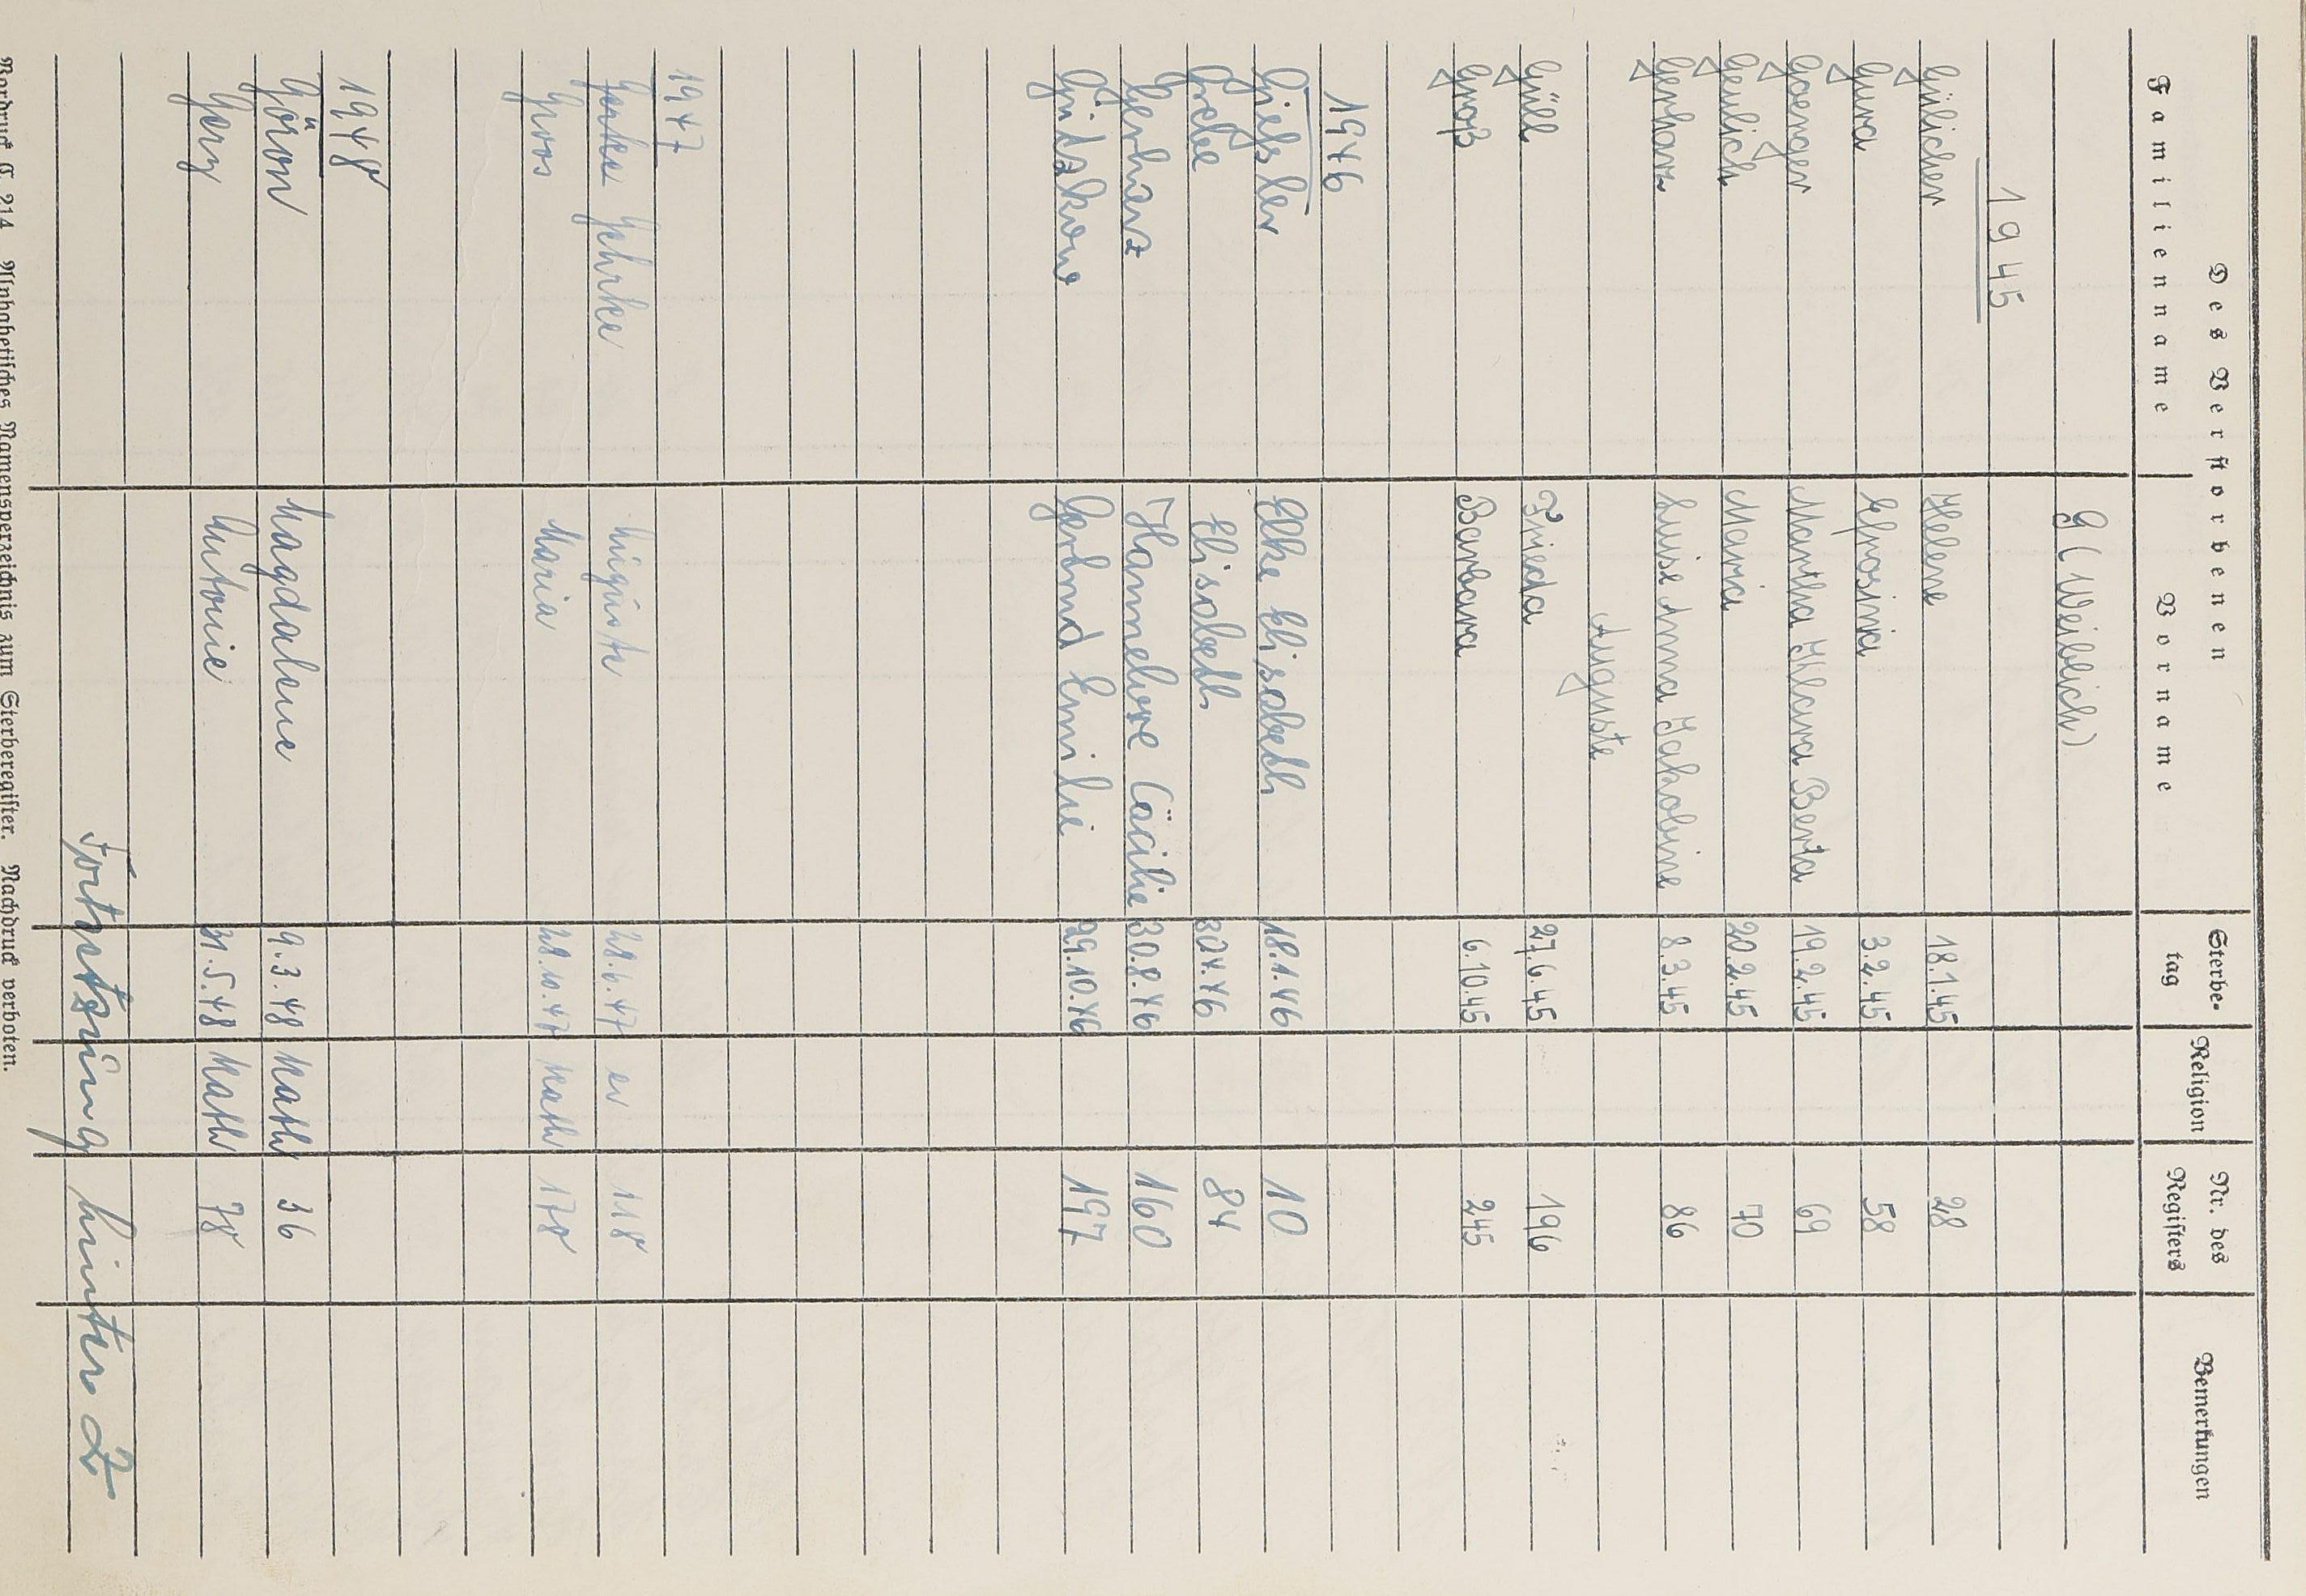 Des Verstorbenen Sterbe- Religion Nr. des Bemerkungen
Familienname Vorname tag Registers
G (Weiblich)
1945
Gülicher Helene 18.1.45 28
Gura Efrosinia 3.2.45 58
Goenger Martha Klara Berta 19.2.45 69
Geulich Maria 20.2.45 70
Gerharz Luise Anna Jakobine 8.3.45 86
Auguste
Güll Frieda 27.6.45 196
Groß Barbara 6.10.45 245
1946
Gießler Elke Elisabeth 18.1.46 10
Grebe Elisabeth 30.4.46 84
Gerharz Hannelore Cäcilie 30.8.46 160
Gridzkow Gertrud Emilie 29.10.46 197
1947
Gehrke Auguste 28.6.47 ev 118
Groos Maria 28.10.47 kath 178
1948
Göron Magdalene 9.3.48 Kath 36
Gerz Antonie 31.5.48 Kath 78
Fortsetzung hinter Z
Vordruck C 214 Alphabetisches Namensverzeichnis zum Sterberegister. Nachdruck verboten.